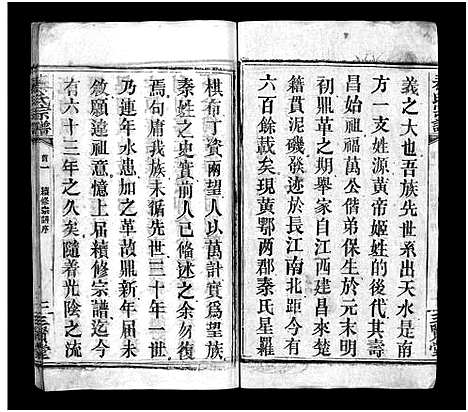 義之大也吾族先世系出天水
方一支姓源黄帝姬姓的後代其壽
昌始祖萬公偕弟保生於元末明
初鼎革之期舉家自江西建昌來楚
籍貫泥磯發迹於長江南北距今有
六百餘載矣現黄鄂两郡秦氏星羅
棋布丁資兩望人以萬計實為望族
秦姓之史實前人已偹述之余勿復
焉句庸我族未循先世三十年一世
乃連年水患之革故鼎新年屆
敘願違祖意憶上屆續修宗譜迄今
有六十三年之久矣隨着光陰之流
秦氏宗譜
首一
續修宗譜序
二
三賢堂